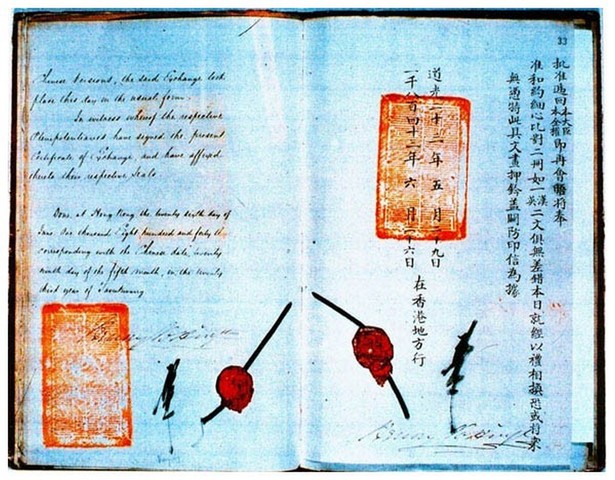 Chinese Versions, the said Exchange took
place this day in the usual form.
In witness whereof the respective
Plenipotentiaries have signed the present
Certificate of Exchange, and have affixed
thereto their respective Seals.
Done at Hong Kong the twenty sixth day of
June One thousand Eight hundred and forty
corresponding with the Chinese date, twenty
ninth day of the fifth month, in the twenty
third year of Taoukwang
33
批准遞回本大臣本公使即再會晤將奉
准和約細心比對二冊如一漢英二文俱無差錯本日經以禮相換恐或將來
無憑特此具文畫押鈐蓋關防印信為據
道光二十三年五月二十九日
一千八百四十三年六月二十六日
在香港地方行